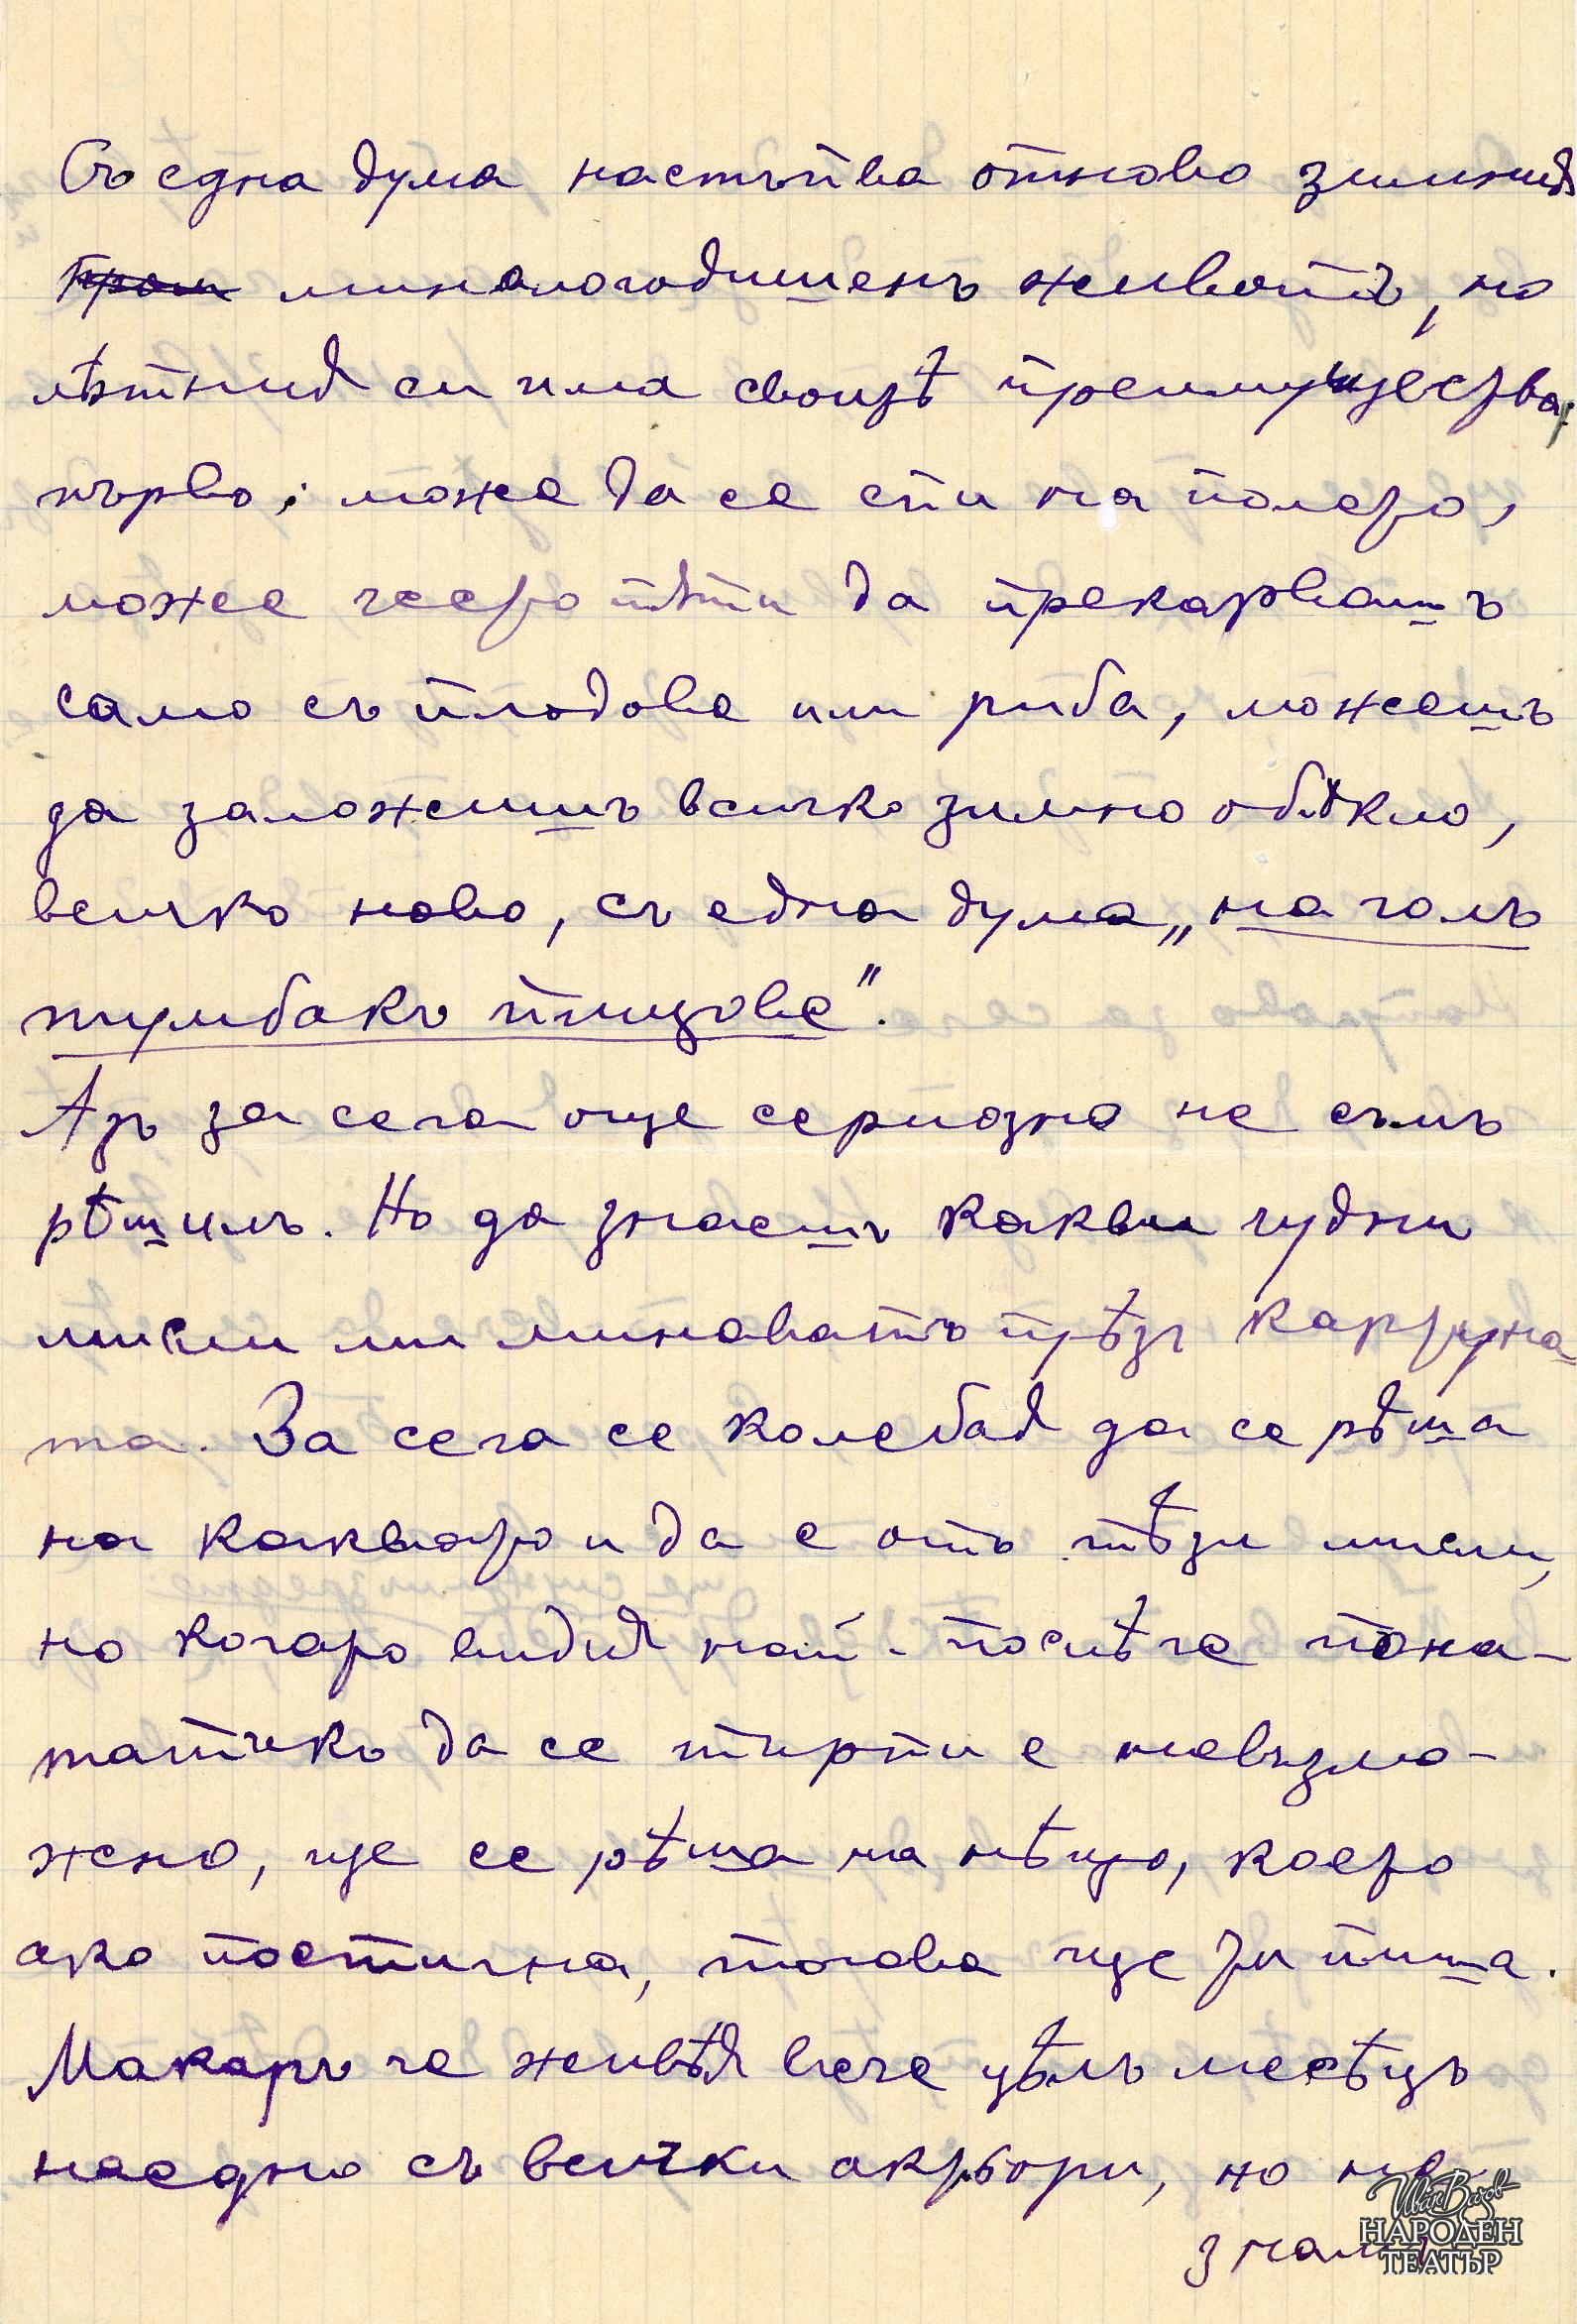 Съ една дума настъпва отново зимния
миналогодишенъ животъ, но
лѣтния си има своитѣ преимущества,
първо: може да се спи на полето,
може често пѫти да прекарвашъ
само съ плодове или риба, можешъ
да заложишъ всичко зимно облѣкло,
всичко ново, съ една дума „на голъ
тумбакъ пищове“.
Азъ за сега още сериозно не съмъ
рѣшилъ. Но да знаешъ какви чудни
мисли ми минаватъ прѣзъ картуна-
та. За сега се колебая да се рѣша
на каквато и да е отъ тѣзи мисли,
но когато видя най-послѣ че пона-
татъкъ да се търпи е невъзмо-
жно, ще се рѣша на нѣщо, което
ако постигна, тогава ще ти пиша.
Макаръ че живѣя вече цѣлъ месѣцъ
наедно съ всички актьори, но не
знамъ
Иван Вазов
НАРОДЕН
ТЕАТЪР